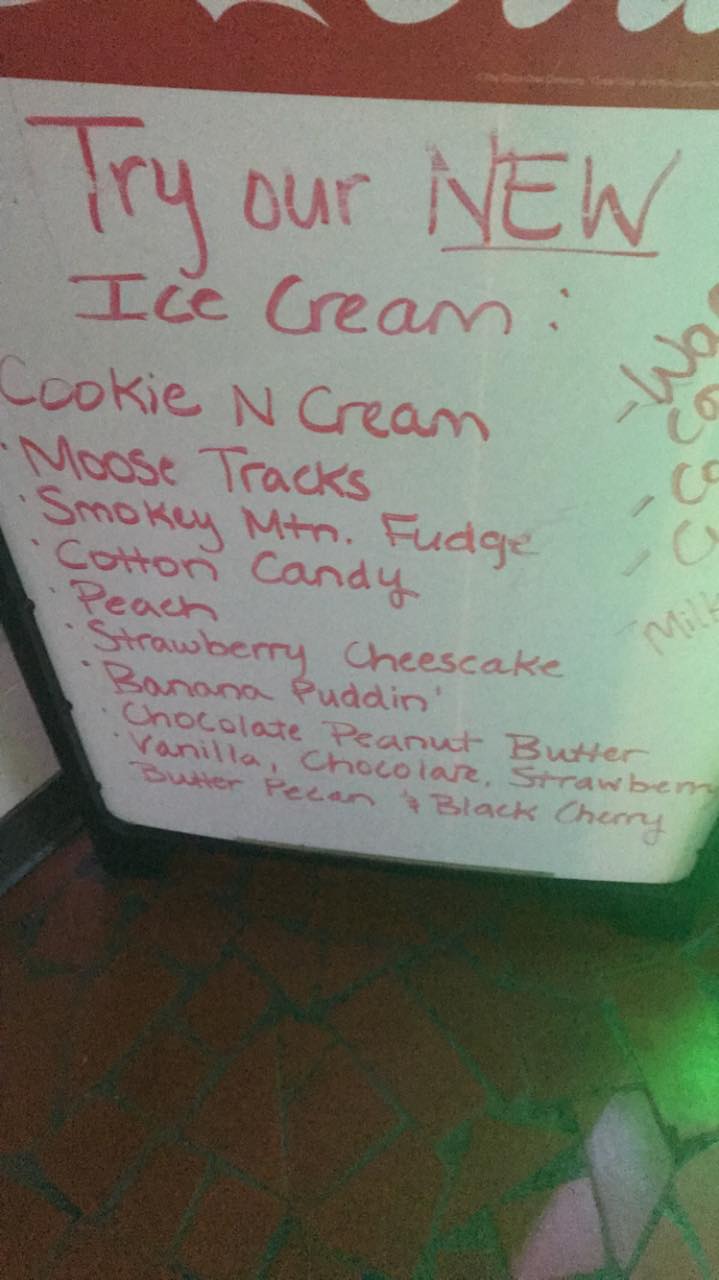 Try our NEW
Ice Cream:
Cookie N Cream
· Moose Tracks
· Smokey Mtn. Fudge
· Cotton Candy
· Peach
· Strawberry Cheescake
· Banana Puddin'
· Chocolate Peanut Butter
· Vanilla, Chocolate, Strawberry
Butter Pecan & Black Cherry